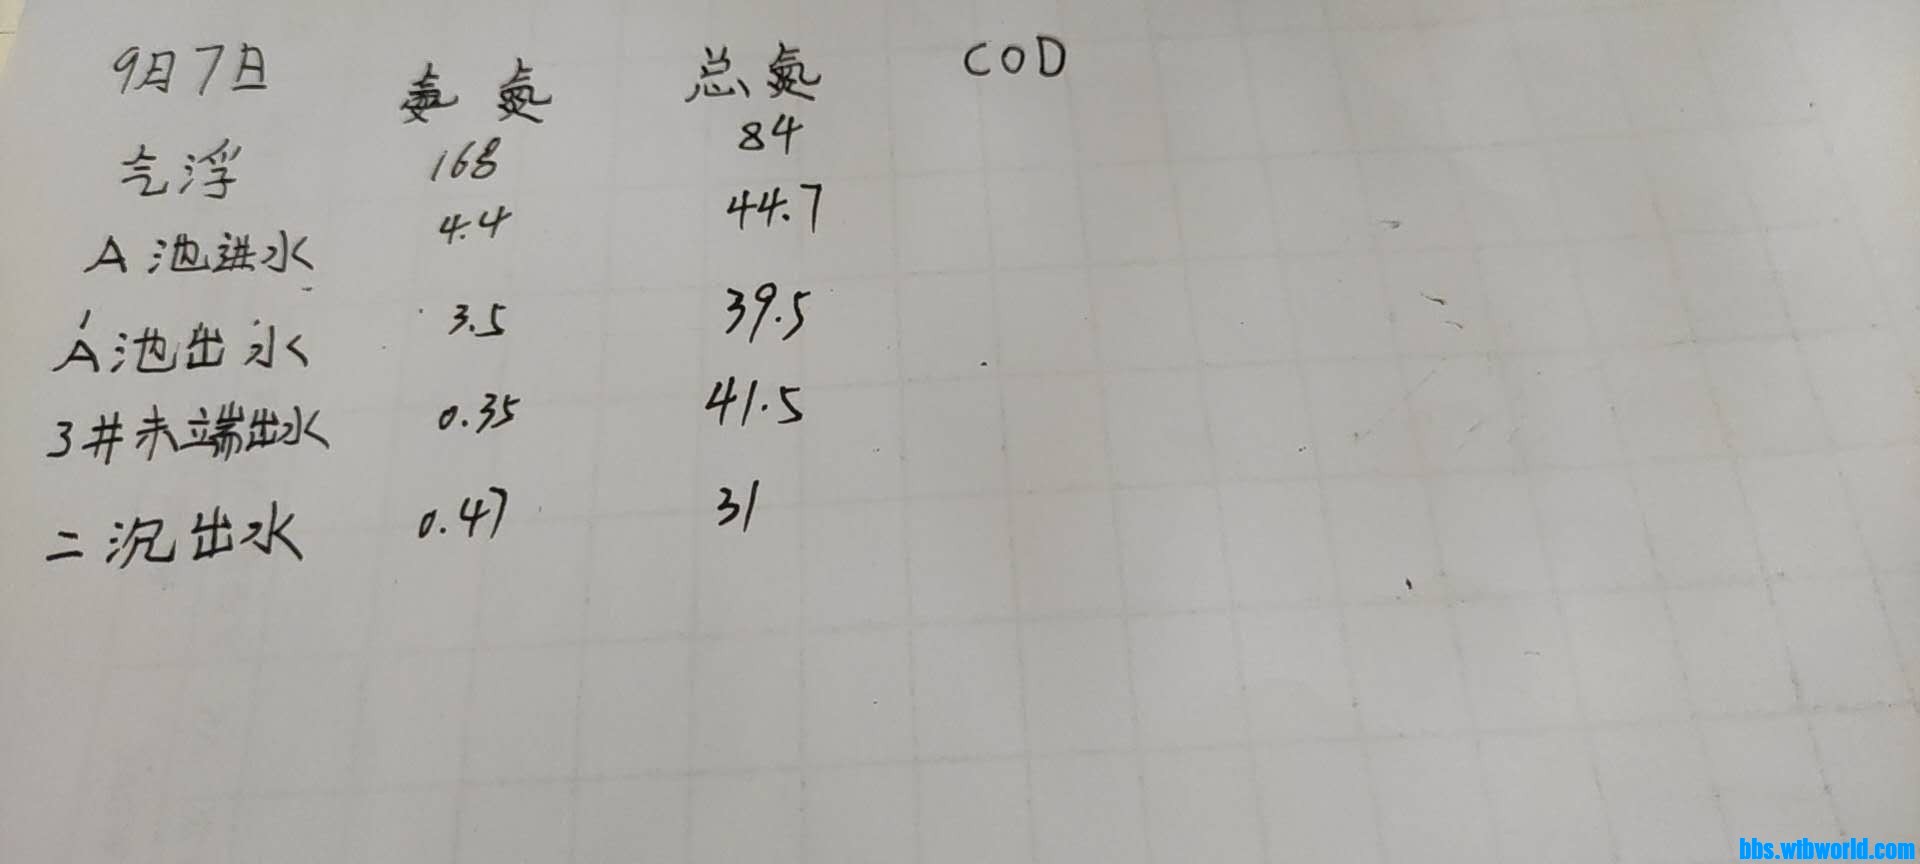 9月7日 氨氮 总氮 COD
气浮 168 84
A池进水 4.4 44.7
A池出水 3.5 39.5
3井未端出水 0.35 41.5
二沉出水 0.47 31
bbs.wtbworld.com